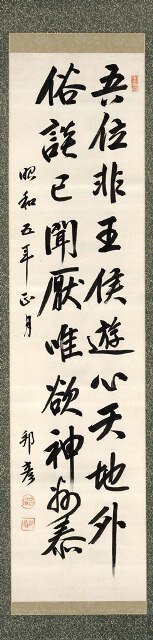 吾位非王侯遊心天地外
俗談已聞厭唯欲神州泰
昭和五年正月 邦彦